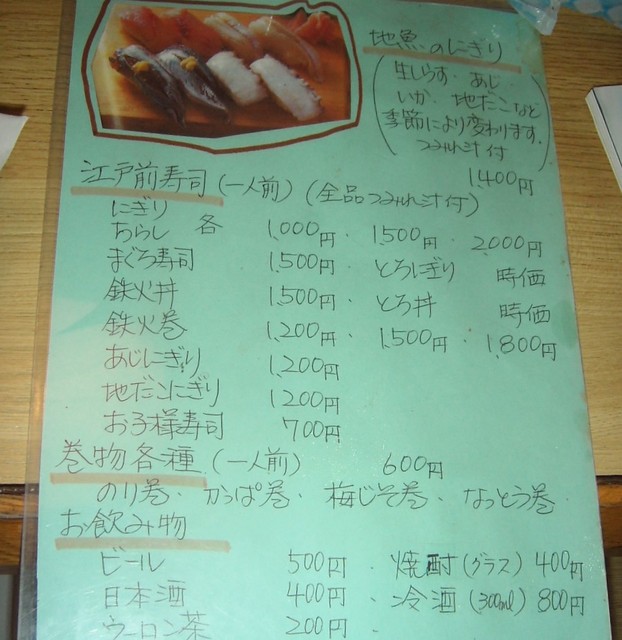 地魚のにぎり
(生しらす・あじ
いか、地だこなど
季節により変わります。
つみれ汁付)
1,400円
江戸前寿司(一人前)(全品つみれ汁付)
にぎり
ちらし 各 1,000円・1,500円・2,000円
まぐろ寿司 1,500円・とろにぎり 時価
鉄火丼 1,500円・とろ丼 時価
鉄火巻 1,200円・1,500円・1,800円
あじにぎり 1,200円
地だこにぎり 1200円
お子様寿司 700円
巻物各種(一人前) 600円
のり巻・かっぱ巻・梅じそ巻・なっとう巻・
お飲み物
ビール 500円・焼酎(グラス)400円
日本酒 400円・冷酒(300ml)800円
ウーロン茶 200円・